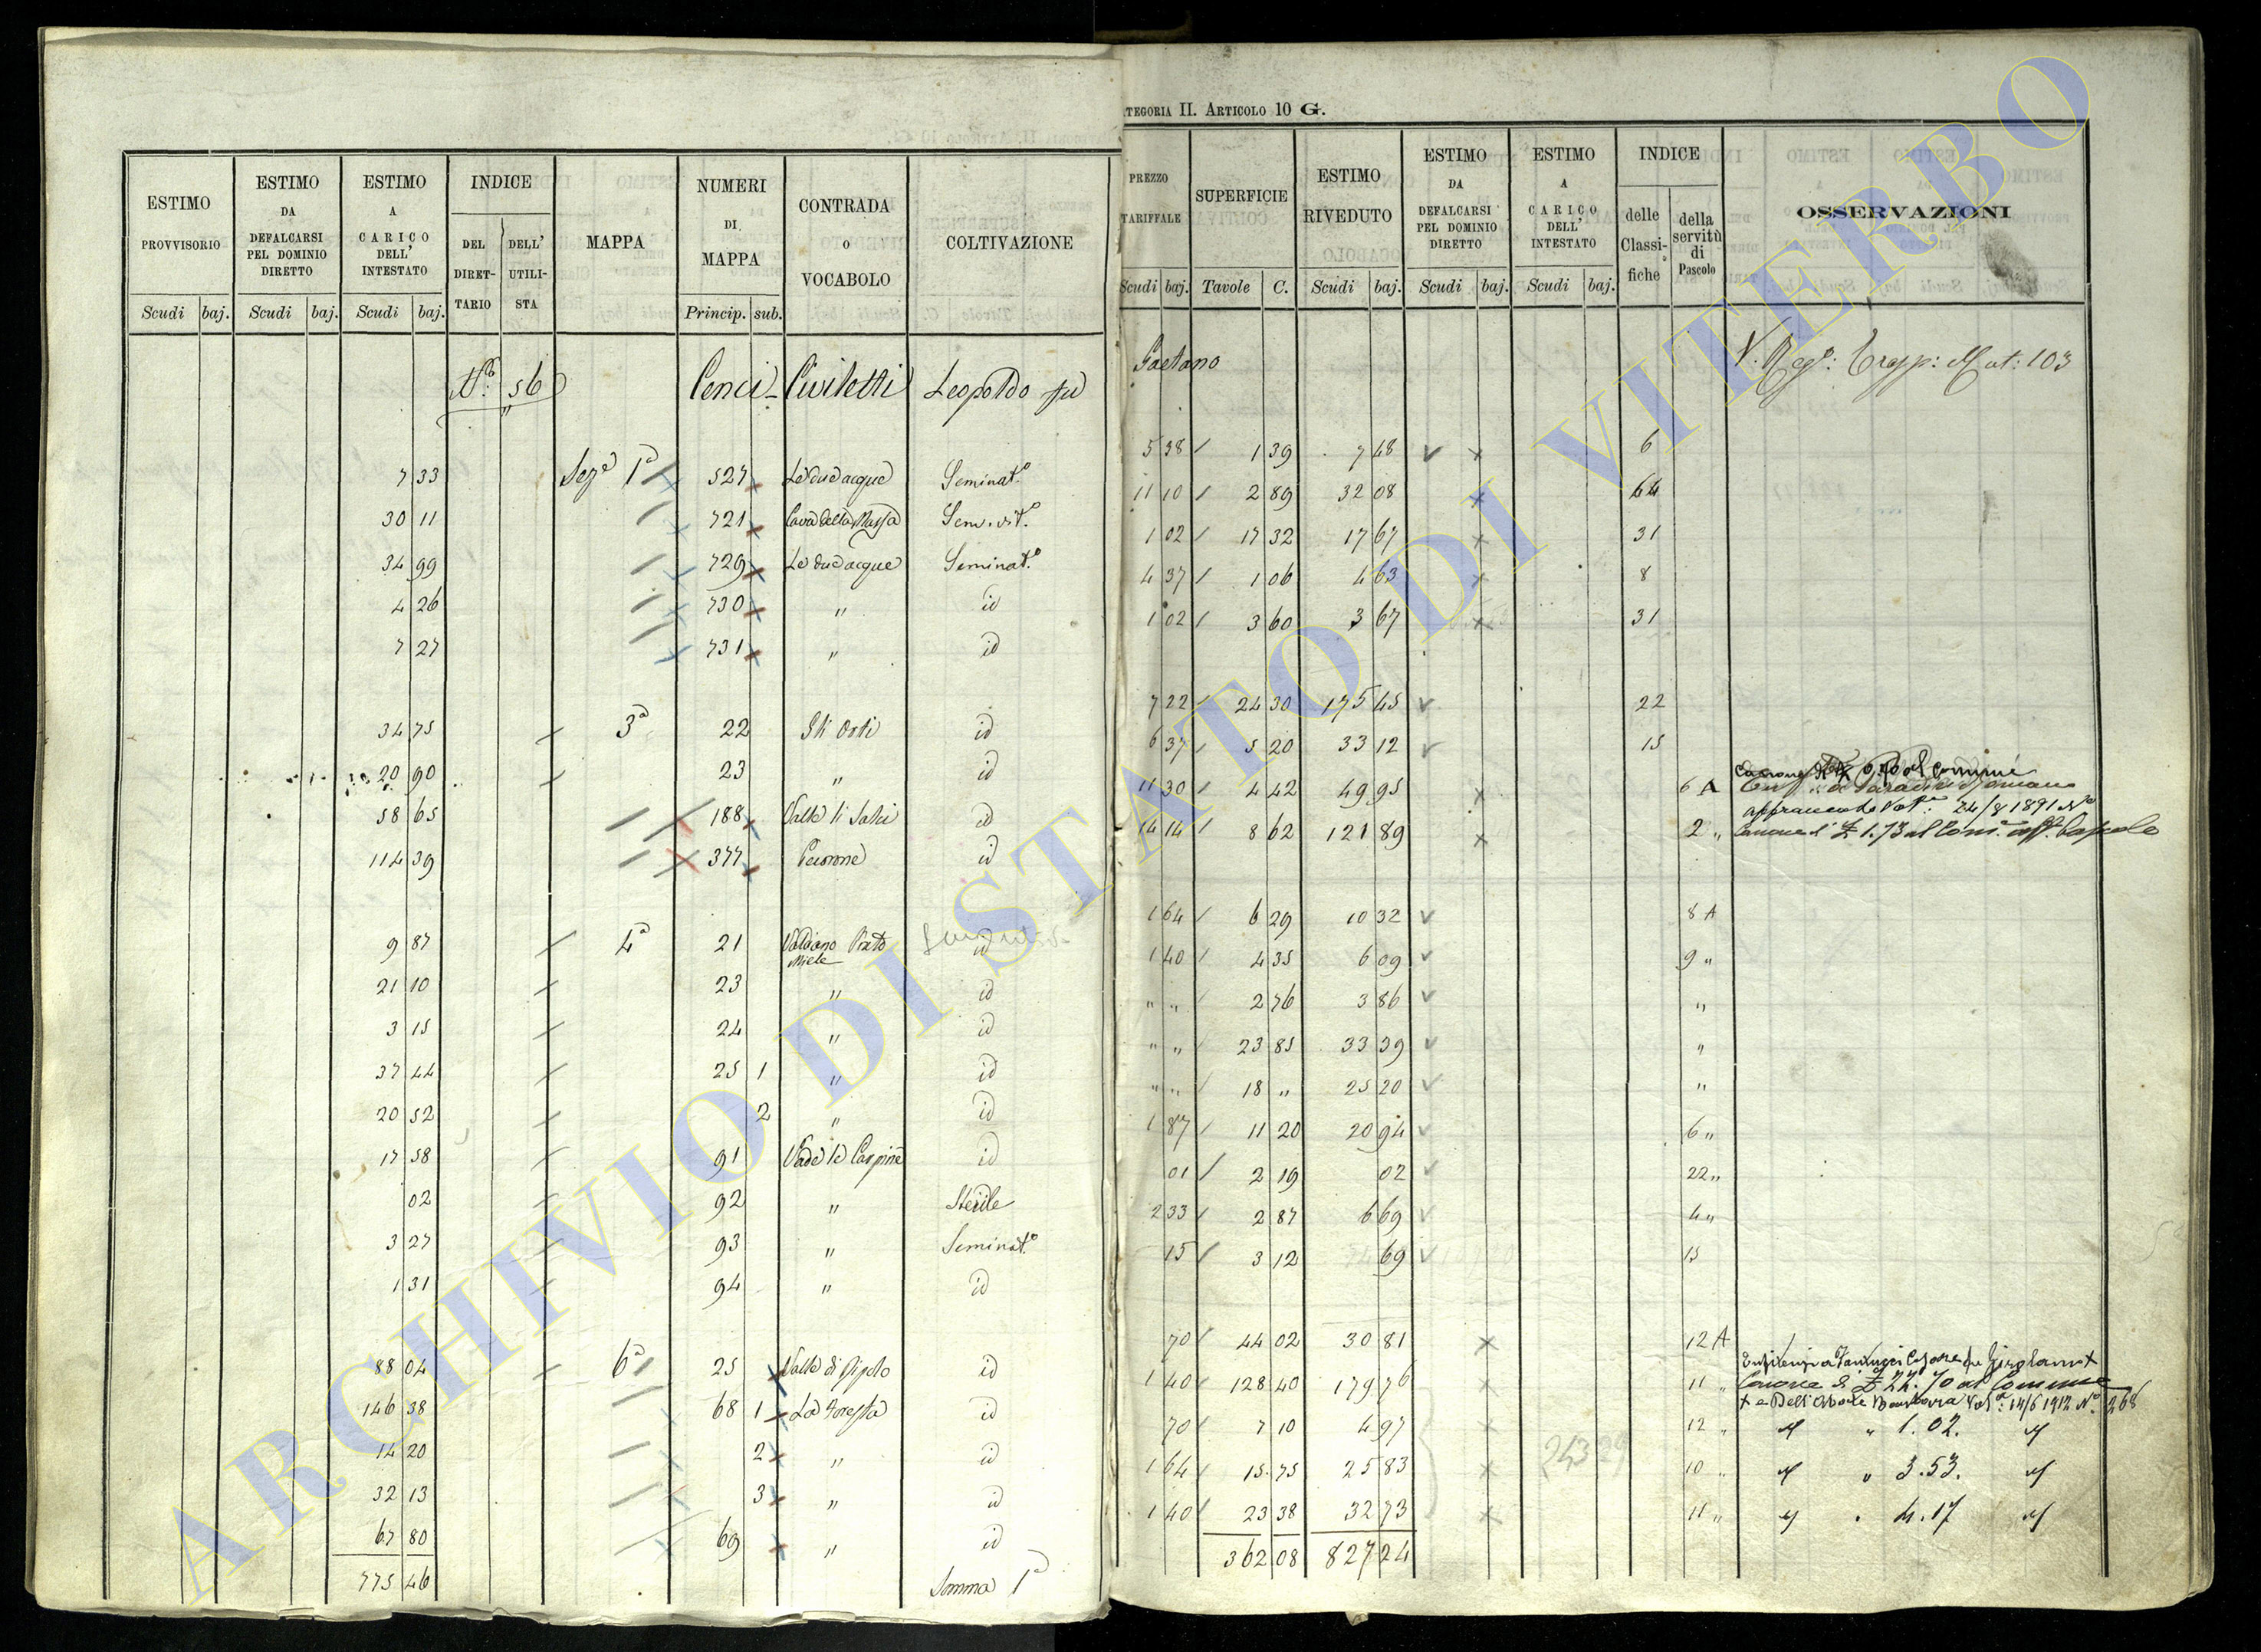 CATEGORIA II. ARTICOLO 10 G.
ESTIMO PROVVISORIO Scudi baj. | ESTIMO DA DEFALCARSI PEL DOMINIO DIRETTO Scudi baj. | ESTIMO A CARICO DELL' INTESTATO Scudi baj. | INDICE DEL DIRETTARIO DELL' UTILISTA | MAPPA | NUMERI DI MAPPA Princip. sub. | CONTRADA O VOCABOLO | COLTIVAZIONE
PREZZO TARIFFALE Scudi baj. | SUPERFICIE Tavole C. | ESTIMO RIVEDUTO Scudi baj. | ESTIMO DA DEFALCARSI PEL DOMINIO DIRETTO Scudi baj. | ESTIMO A CARICO DELL' INTESTATO Scudi baj. | INDICE delle Classifiche della servitù di Pascolo | OSSERVAZIONI
No. 56 Cenci-Civiletti Leopoldo fu Gaetano
Mat: 103
7 33 Seze 1a 527 Le due acque Seminato
30 11 721 Cava della Sem. vit.
34 99 729 Le due acque Seminato
4 26 730 " id
7 27 731 " id
34 75 3a 22 Gli Orti id
20 90 23 " id
58 65 188 Valle id
114 39 377 id
9 87 4a 21 Prato Miele id
21 10 23 " id
3 15 24 " id
37 44 25 1 " id
20 52 2 " id
17 58 91 id
02 92 " Sterile
3 27 93 " Seminato
1 31 94 " id
88 04 6a 25 Valle di id
146 38 68 1 La Foresta id
14 20 2 " id
32 13 3 " id
67 80 69 " id
775 46 Somma 1a
5 38 1 39 7 48 6
11 10 2 89 32 08 44
1 02 17 32 17 67 31
4 37 1 06 4 63 8
1 02 3 60 3 67 31
7 22 24 30 175 45 22
6 37 5 20 33 12 15
11 30 4 42 49 95 6 A
14 14 8 62 121 89 2 "
1 64 6 29 10 32 8 A
1 40 4 35 6 09 9 "
" " 2 76 3 86 "
" " 23 85 33 39 "
" " 18 " 25 20 "
1 87 11 20 20 94 6 "
01 2 19 02 22 "
2 33 2 87 6 69 4 "
15 3 12 69 15
70 44 02 30 81 12 A
1 40 128 40 179 76 11 " Canone di £ 22.70 al Comune
70 7 10 4 97 12 " " 1.02.
1 64 15 75 25 83 10 " " 3.53.
1 40 23 38 32 73 11 " " 4.17
362 08 827 24
ARCHIVIO DI STATO DI VITERBO